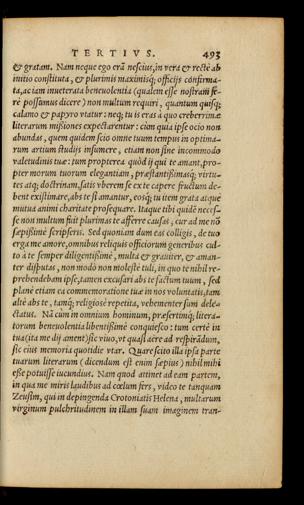 TERTIVS. 493
& gratam. Nam neque ego erā nescius, in vera & recte ab
initio constituta, & plurimis maximisq; officijs confirma-
ta, ac iam inueterata beneuolentia (qualem esse nostram fe-
re possumus dicere) non multum requiri, quantum quisq;
calamo & papyro vtatur: neq; tu is eras à quo creberrimæ
literarum missiones expectarentur: cùm quia ipse ocio non
abundas, quem quidem scio omne tuum tempus in optima-
rum artium studijs insumere, etiam non sine incommodo
valetudinis tuæ: tum propterea quòd ij qui te amant, pro-
pter morum tuorum elegantiam, præstantissimasq; virtu-
tes atq; doctrinam, satis vberem se ex te capere fructum de-
bent existimare, abs te si amantur, eosq; tu item grata atque
mutua animi charitate prosequare. Itaque tibi quidē neces-
se non multum fuit plurimas te afferre causas, cur ad me nō
sæpissimè scripseris. Sed quoniam dum eas colligis, de tuo
erga me amore, omnibus reliquis officiorum generibus cul-
to à te semper diligentissimè, multa & grauiter, & aman-
ter disputas, non modò non molestè tuli, in quo te nihil re-
prehendebam ipse, tamen excusari abs te factum tuum, sed
planè etiam ea commemoratione tuæ in nos voluntatis, tam
altè abs te, tamq; religiosè repetita, vehementer sum dele-
ctatus. Nā cùm in omnium hominum, præsertimq; litera-
torum beneuolentia libentissimè conquiesco: tum certè in
tua (ita me dij ament) sic viuo, vt quasi aëre ad respirādum,
sic eius memoria quotidie vtar. Quare scito illa ipsa parte
tuarum literarum (dicendum est enim sæpius) nihil mihi
esse potuisse iucundius. Nam quod attinet ad eam partem,
in qua me miris laudibus ad cœlum fers, video te tanquam
Zeusim, qui in depingenda Crotoniatis Helena, multarum
virginum pulchritudinem in illam suam imaginem tran-